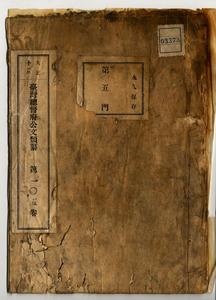 03373
永久保存
第五門
大正
臺灣總督府公文類纂
第一〇三卷